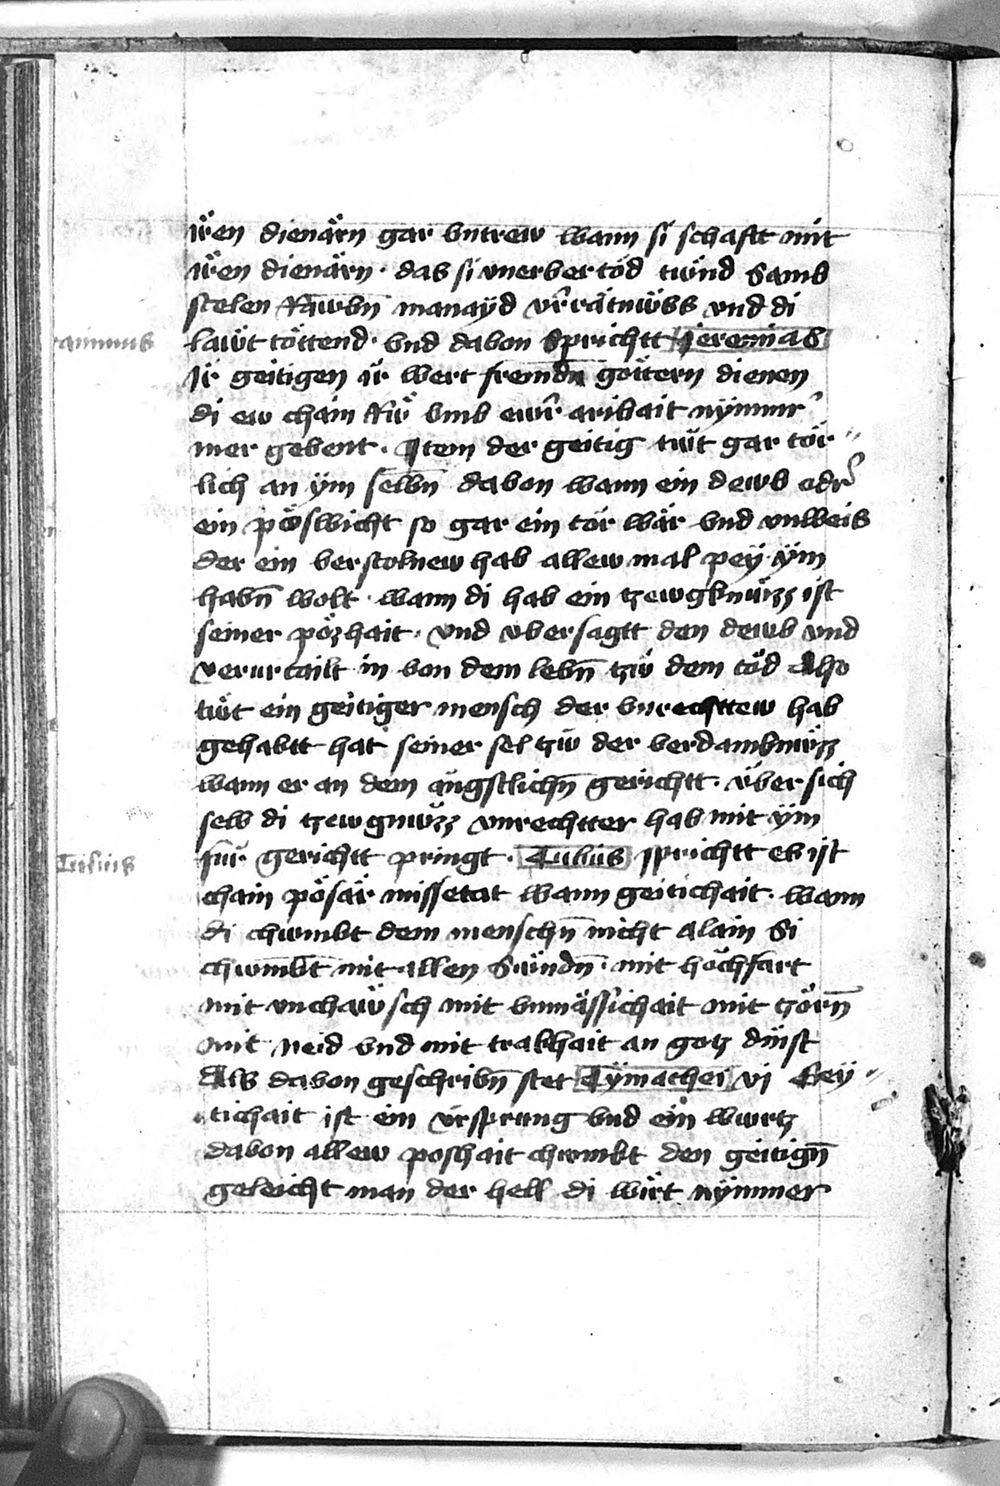 iren dienärn gar vntrew wann si schafft mit
iren dienärn · das si vnerber tod tünd Samb
stelen Rawbn̄ manayd vr̄rätnüss vnd di
rammus
läwt töttend · vnd dabon Sprichtt Jeremias
Ir geitigen ir wert fremdn göttern dienen
di ew chain Rw vmb ewr̄ aribait nÿmmr
mer gebent · Item der geitig tüt gar tör
lich an ÿm selbn̄ dabon wann ein dewb odr̄
ein pöswicht so gar ein tör wär vnd vnweis
der ein verstolnew hab allew mal peÿ ÿm
habn̄ wolt · wann di hab ein tzewgknüzz ist
seiner pözhait · vnd vbersagtt den dewb vnd
verurtailt in von dem lebn̄ tzü dem töd Also
tüt ein geitiger mensch der vnrechttew hab
gehabtt hat seiner sel tzü der verdambnüzz
wann er an dem ängstlichn̄ gerichtt · über sich
selb di tzewgnüzz vnrechtter hab mit ÿm
Tulius
für gerichtt pringt · Tulius sprichtt es ist
chain pösär missetat wann geitichait · wann
di chwmbt dem menschn̄ nicht alain Si
chwmbt mit allen Sündn̄ · mit hochfart
mit vnchawsch mit vnmässichait mit tzörn̄
mit neid vnd mit trakhait an gotz dinst
Als dabon geschribn̄ stet Tÿmathei vj Geÿ
tichait ist ein vrsprung vnd ein wurtz
dabon allew poshait chwmbt den geitign̄
geleicht man der hell di wirt nÿmmer